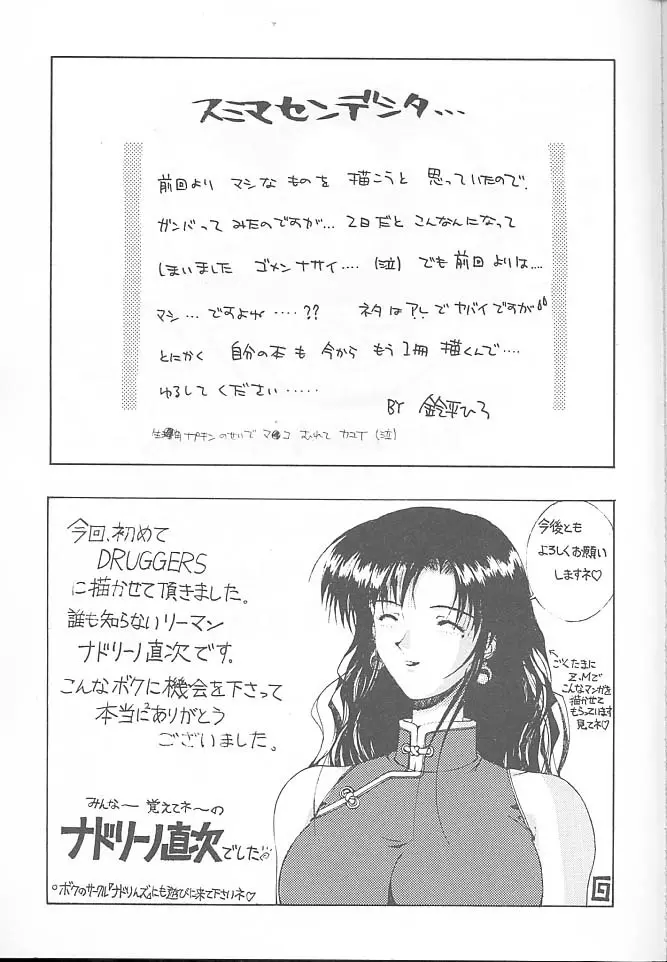 スミマセンデシタ...
前回より マシな ものを 描こうと 思っていたので、
ガンバって みたのですが... 2日だと こんなんになって
しまいました ゴメンナサイ....(泣) でも前回 よりは....
マシ...ですよね.....?? ネタは アレで ヤバイですが
とにかく 自分の本も 今から もう1冊 描くんで....
ゆるして ください.....
BY 鈴平ひろ
ナプキン のせいで マ●コ むれて カユイ (泣)
今回、初めて
DRUGGERS
に描かせて頂きました。
誰も知らないリーマン
ナドリーノ直次です。
こんなボクに機会を下さって
本当にありがとう
ございました。
みんなー 覚えてネ〜の
ナドリーノ直次でした
○ボクのサークル『ナドりんズ』にも遊びに来て下さいネ♡
今後とも
よろしくお願い
しますネ♡
←ごくたまに
Z.Mで
こんなマンガを
描かせて
もらっています
見てネ♡